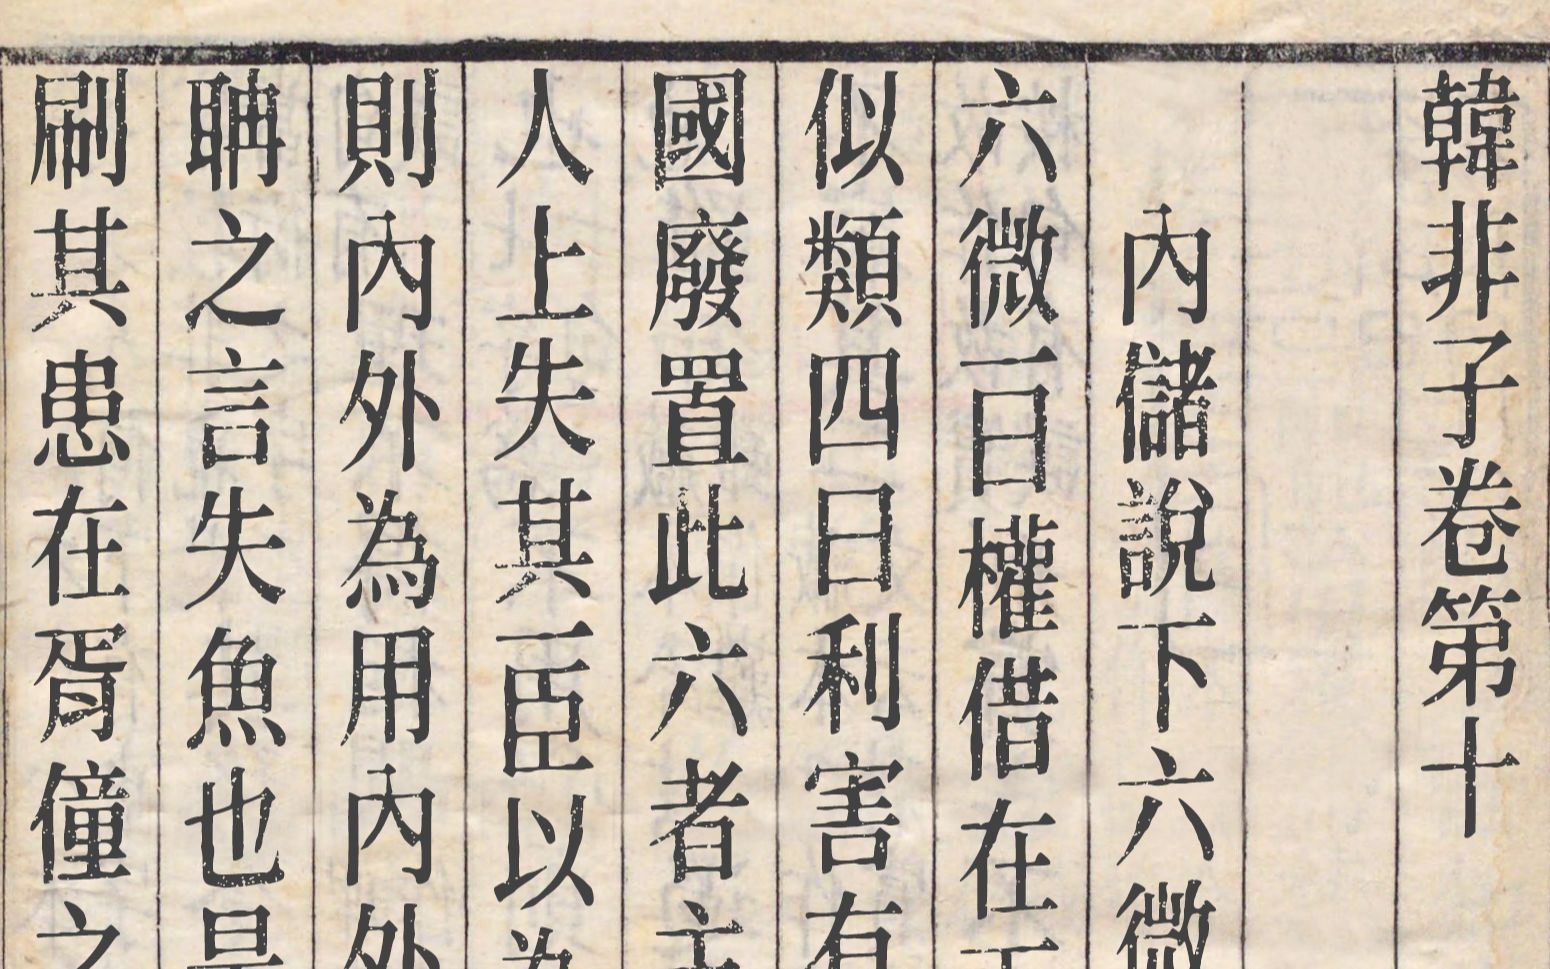 韓非子卷第十
內儲說下六微
六微一曰權借在下
似類四曰利害有
國廢置此六者主
人上失其臣以為
則內外為用內外
聃之言失魚也是
刷其患在胥僮之